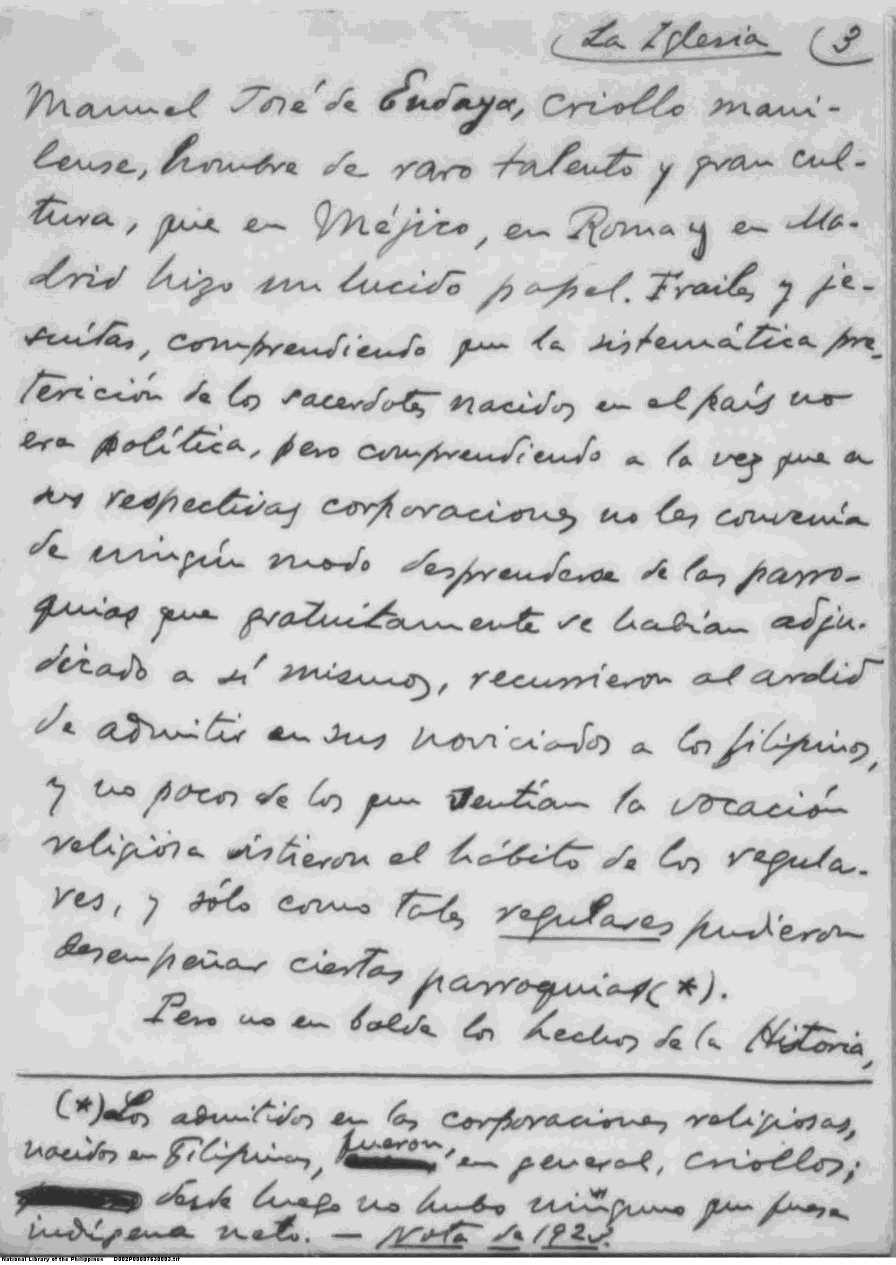 La Iglesia (3
Manuel José de Endaya, criollo mani-
lense, hombre de raro talento y gran cul-
tura, que en Méjico, en Roma y en Ma-
drid hizo un lucido papel. Frailes y je-
suítas, comprendiendo que la sistemática pre-
terición de los sacerdotes nacidos en el país no
era política, pero comprendiendo a la vez que a
sus respectivas corporaciones no les convenía
de ningún modo desprenderse de las parro-
quias que gratuitamente se habían adju-
dicado a sí mismos, recurrieron al ardid
de admitir en sus noviciados a los filipinos,
y no pocos de los que sentían la vocación
religiosa vistieron el hábito de los regula-
res, y sólo como tales regulares pudieron
desempeñar ciertas parroquias (*).
Pero no en balde los hechos de la Historia,
(*) Los admitidos en las corporaciones religiosas,
nacidos en Filipinas, fueron, en general, criollos;
desde luego no hubo ninguno que fuese
indígena neto. — Nota de
National Library of the Philippines